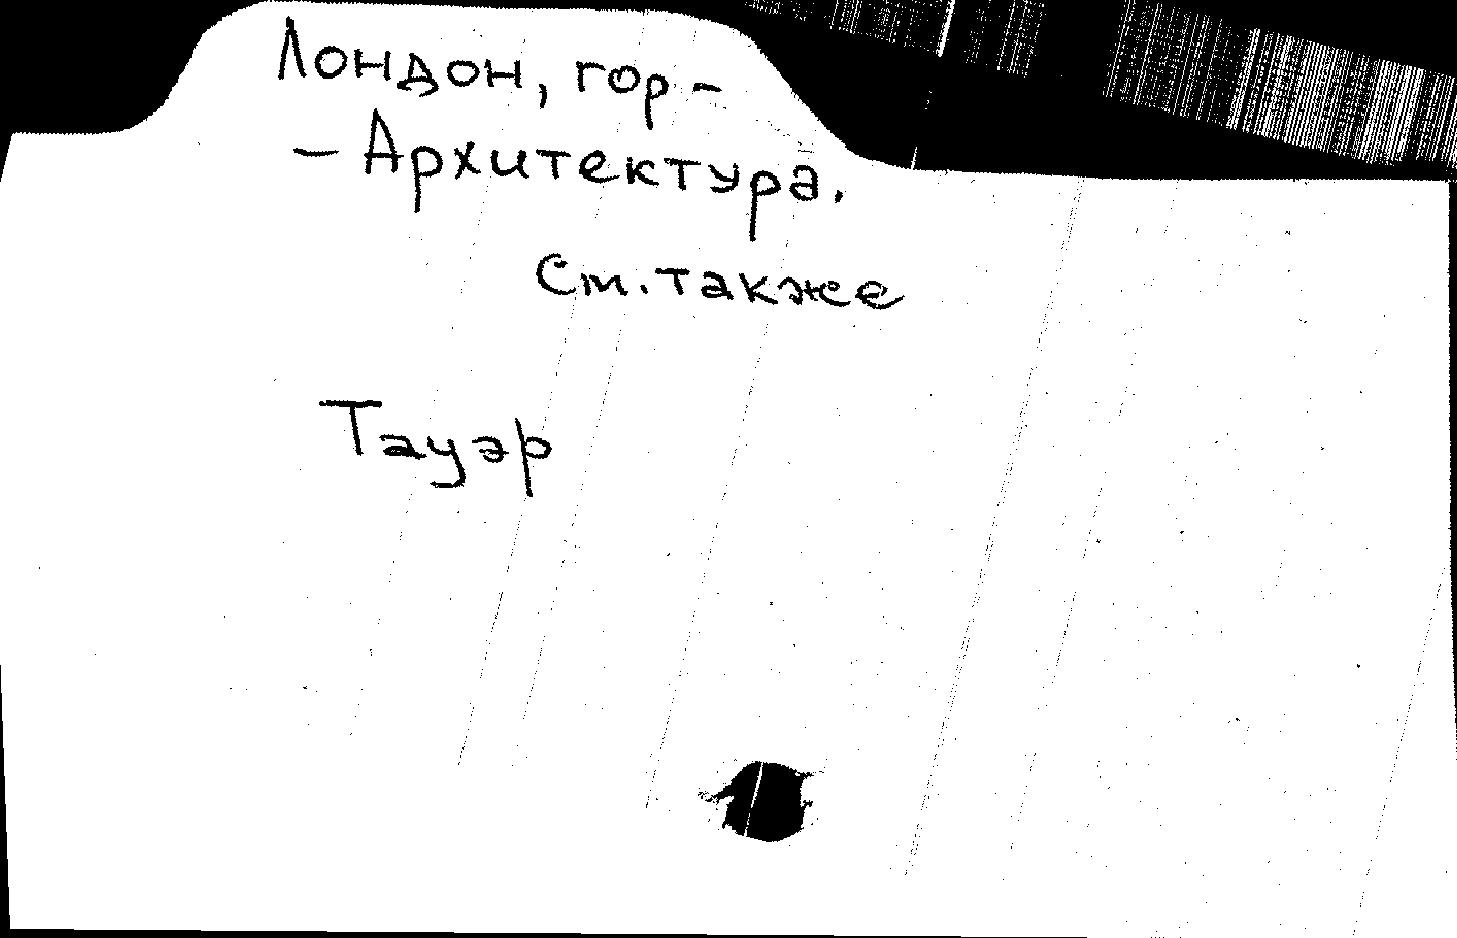 Лондон, гор -
- Архитектура.
См. также
Тауэр